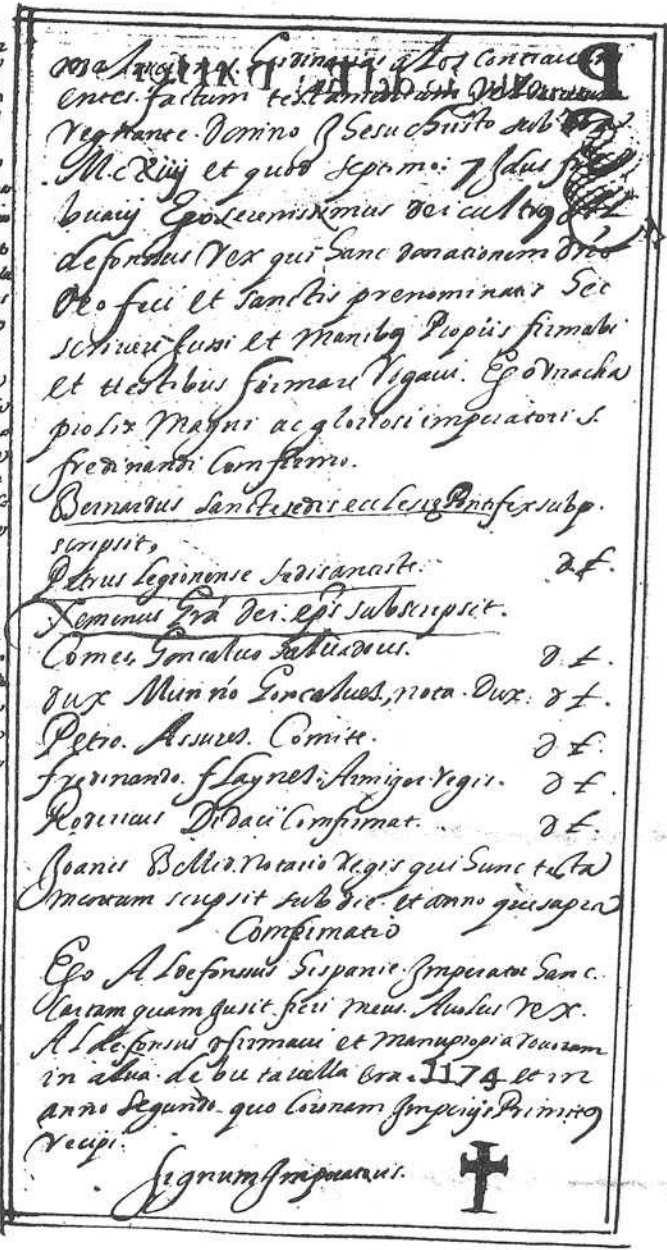 entes. factum testamentum
regnante. Domino Jhesu Christo sub
M.cXiiij et quod septimo: 7 Jdus fe
buarij Ego serenissimus Dei cultor
defonsus Rex qui hanc donationem dño
Deo feci et sanctis prenominatis Sec
scrivere Jussi et manibꝯ Propiis firmabi
et ttestibus firmare Rigavi. Ego Vrracha
prolix Magni ac gloriosi imperatoris.
fredinandi Comfirmo.
Bernardus sancte sedis ecclesię Pontifex subp.
scripsit,
Petrus Legionense sedis anciste. df.
Xemenus Grã dei. epĩs subscripsit.
Comes, Goncalvo Salvadoris. d f.
dux Munnio Goncalves, nota. Dux. d f.
Petro. Assures. Comite. d f.
fredinando. fLaynes. Armiger regis. d f.
Rodericus Didaci Comfirmat. d f.
Joanis Bellid. Notario Regis qui hunc testa
mentum scripsit sub die. et anno qui supra
Comfimatio
Ego ALdefonsus Hispanie. Jmperator hanc.
Cartam quam Jusit. fieri meus. Avolus rex.
ALdefonsus cfirmavi et manu propia rovoram
in alva. de bu tavella era. 1174 et in
anno Segundo quo Coronam Jmperij Primitꝯ
recipi.
signum Jmperatoris.